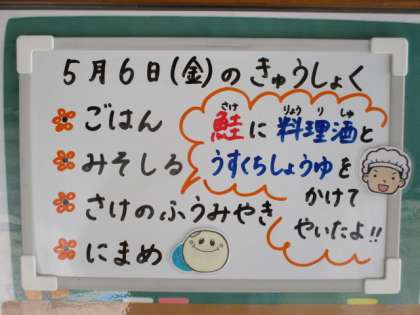 5月6日(金)のきゅうしょく
ごはん
みそしる
さけのふうみやき
にまめ
さけ りょうりしゅ
鮭に料理酒と
うすくちしょうゆを
かけて
やいたよ!!